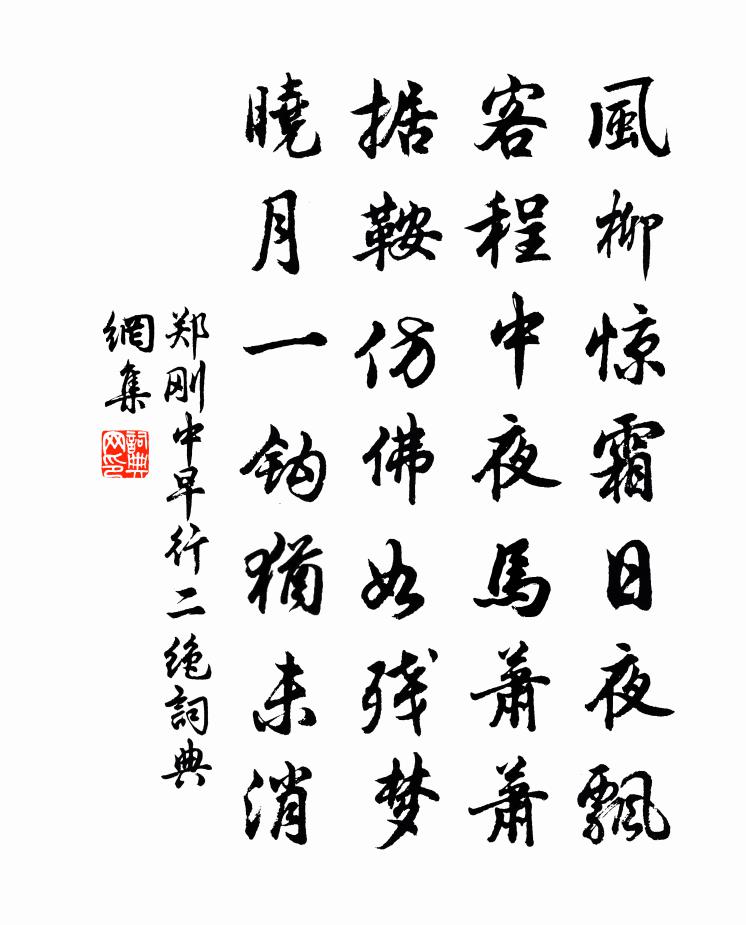 風柳惊霜日夜飄
客程中夜馬蕭蕭
据鞍仿佛如残梦
曉月一鈎猶未消
郑刚中早行二绝詞典
網集
詞典
网印